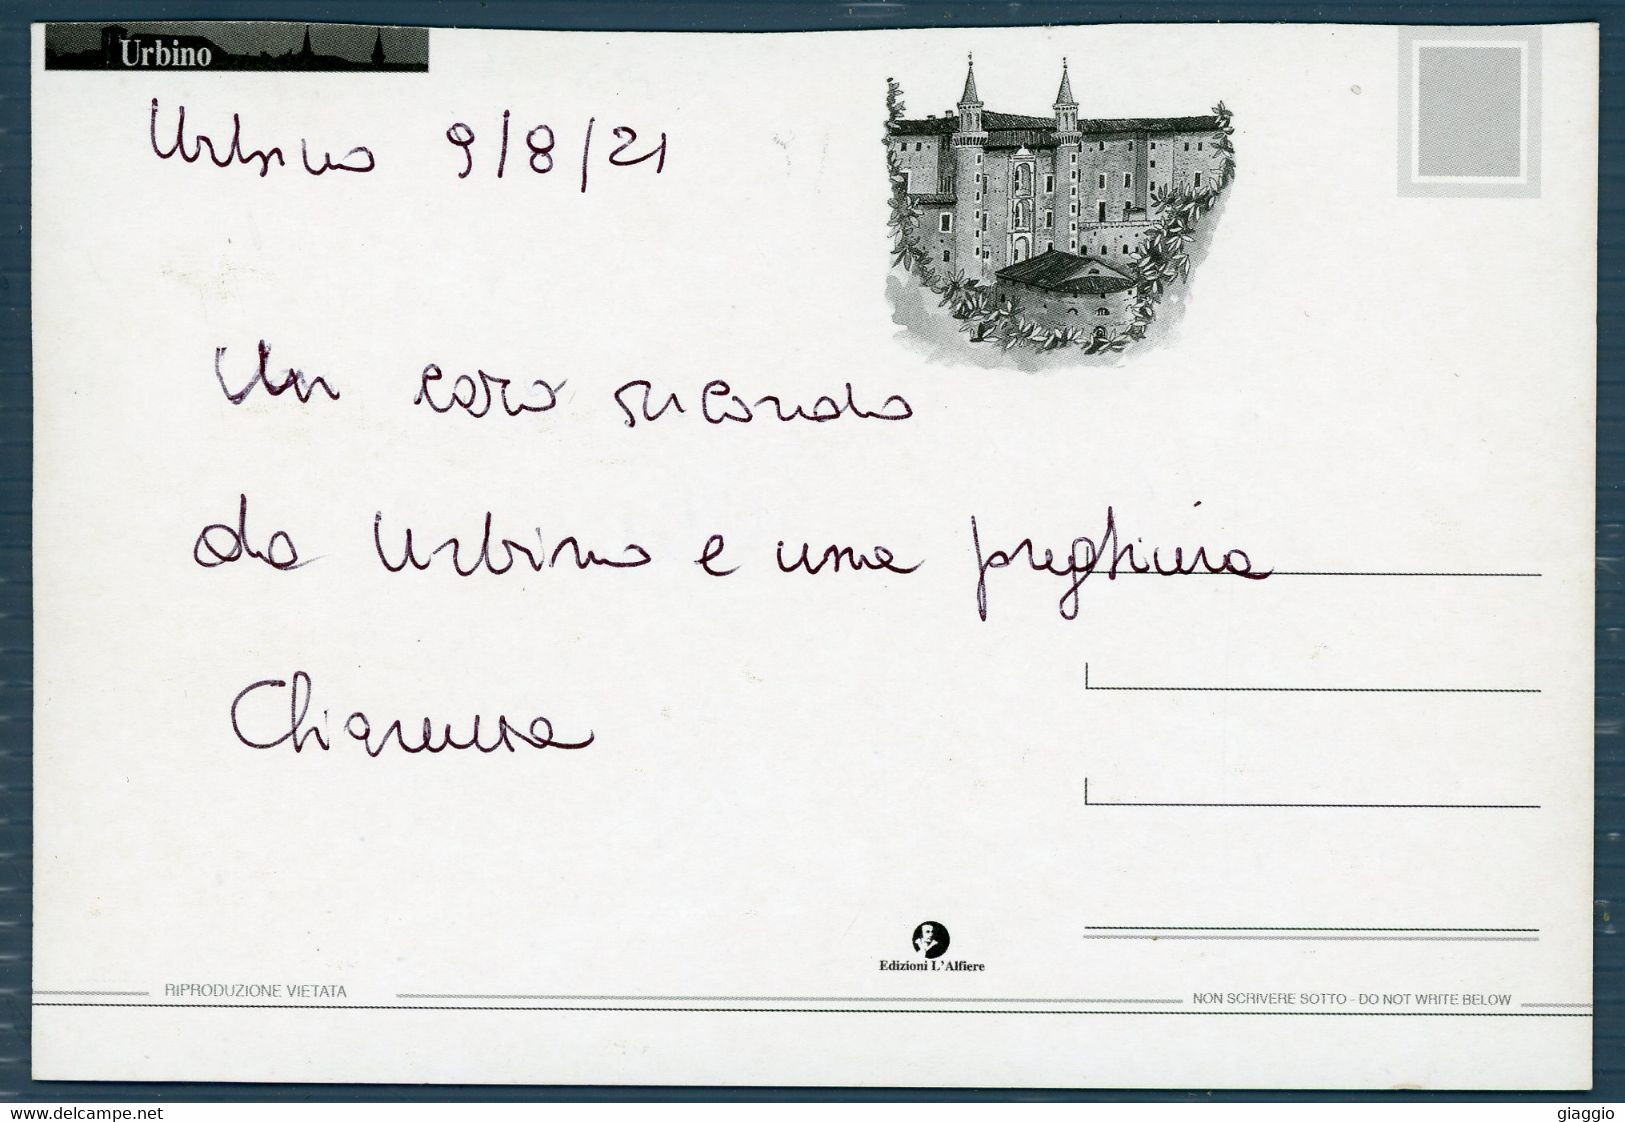 Urbino
Urbino 9/8/21
Un caro ricordo
da Urbino e una preghiera
Edizioni L'Alfiere
RIPRODUZIONE VIETATA
NON SCRIVERE SOTTO - DO NOT WRITE BELOW
delcampe.net
giaggio